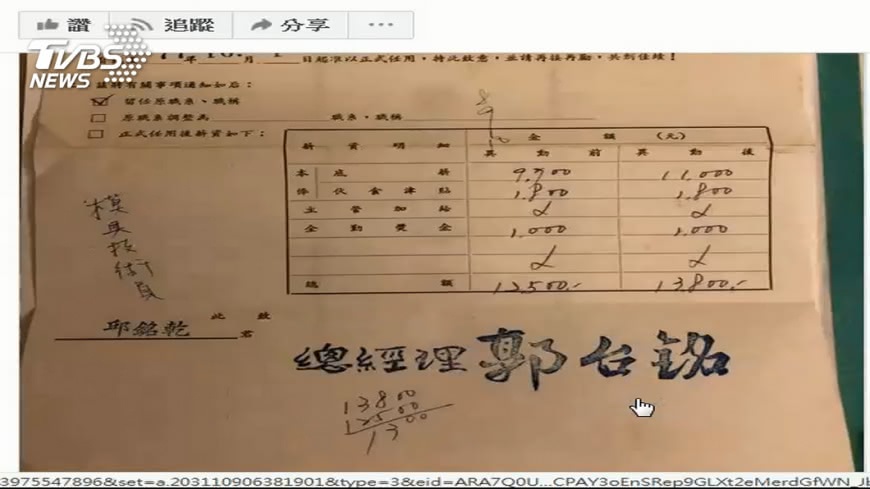 讚 追蹤 分享 ...
TVBS NEWS
年 10 月 1 日起准以正式任用，特此致意，並請再接再勵，共創佳績！
茲將有關事項通知如后：
留任原職系、職稱
原職系調整為 職系，職稱
正式任用後薪資如下：
薪資明細 金額（元）
異動前 異動後
本底薪 9,700 11,000
俸伙食津貼 1,800 1,800
主管加給
全勤獎金 1,000 1,000
總額 12,500.- 13,800.-
模具技術員
此致
邱銘乾 君
總經理 郭台銘
13800
12500
1300
3975547896&set=a.2031109063819​01&type=3&eid=ARA7Q0U...CPAY3oEnSRep9GLXt2eMerdGfWN_